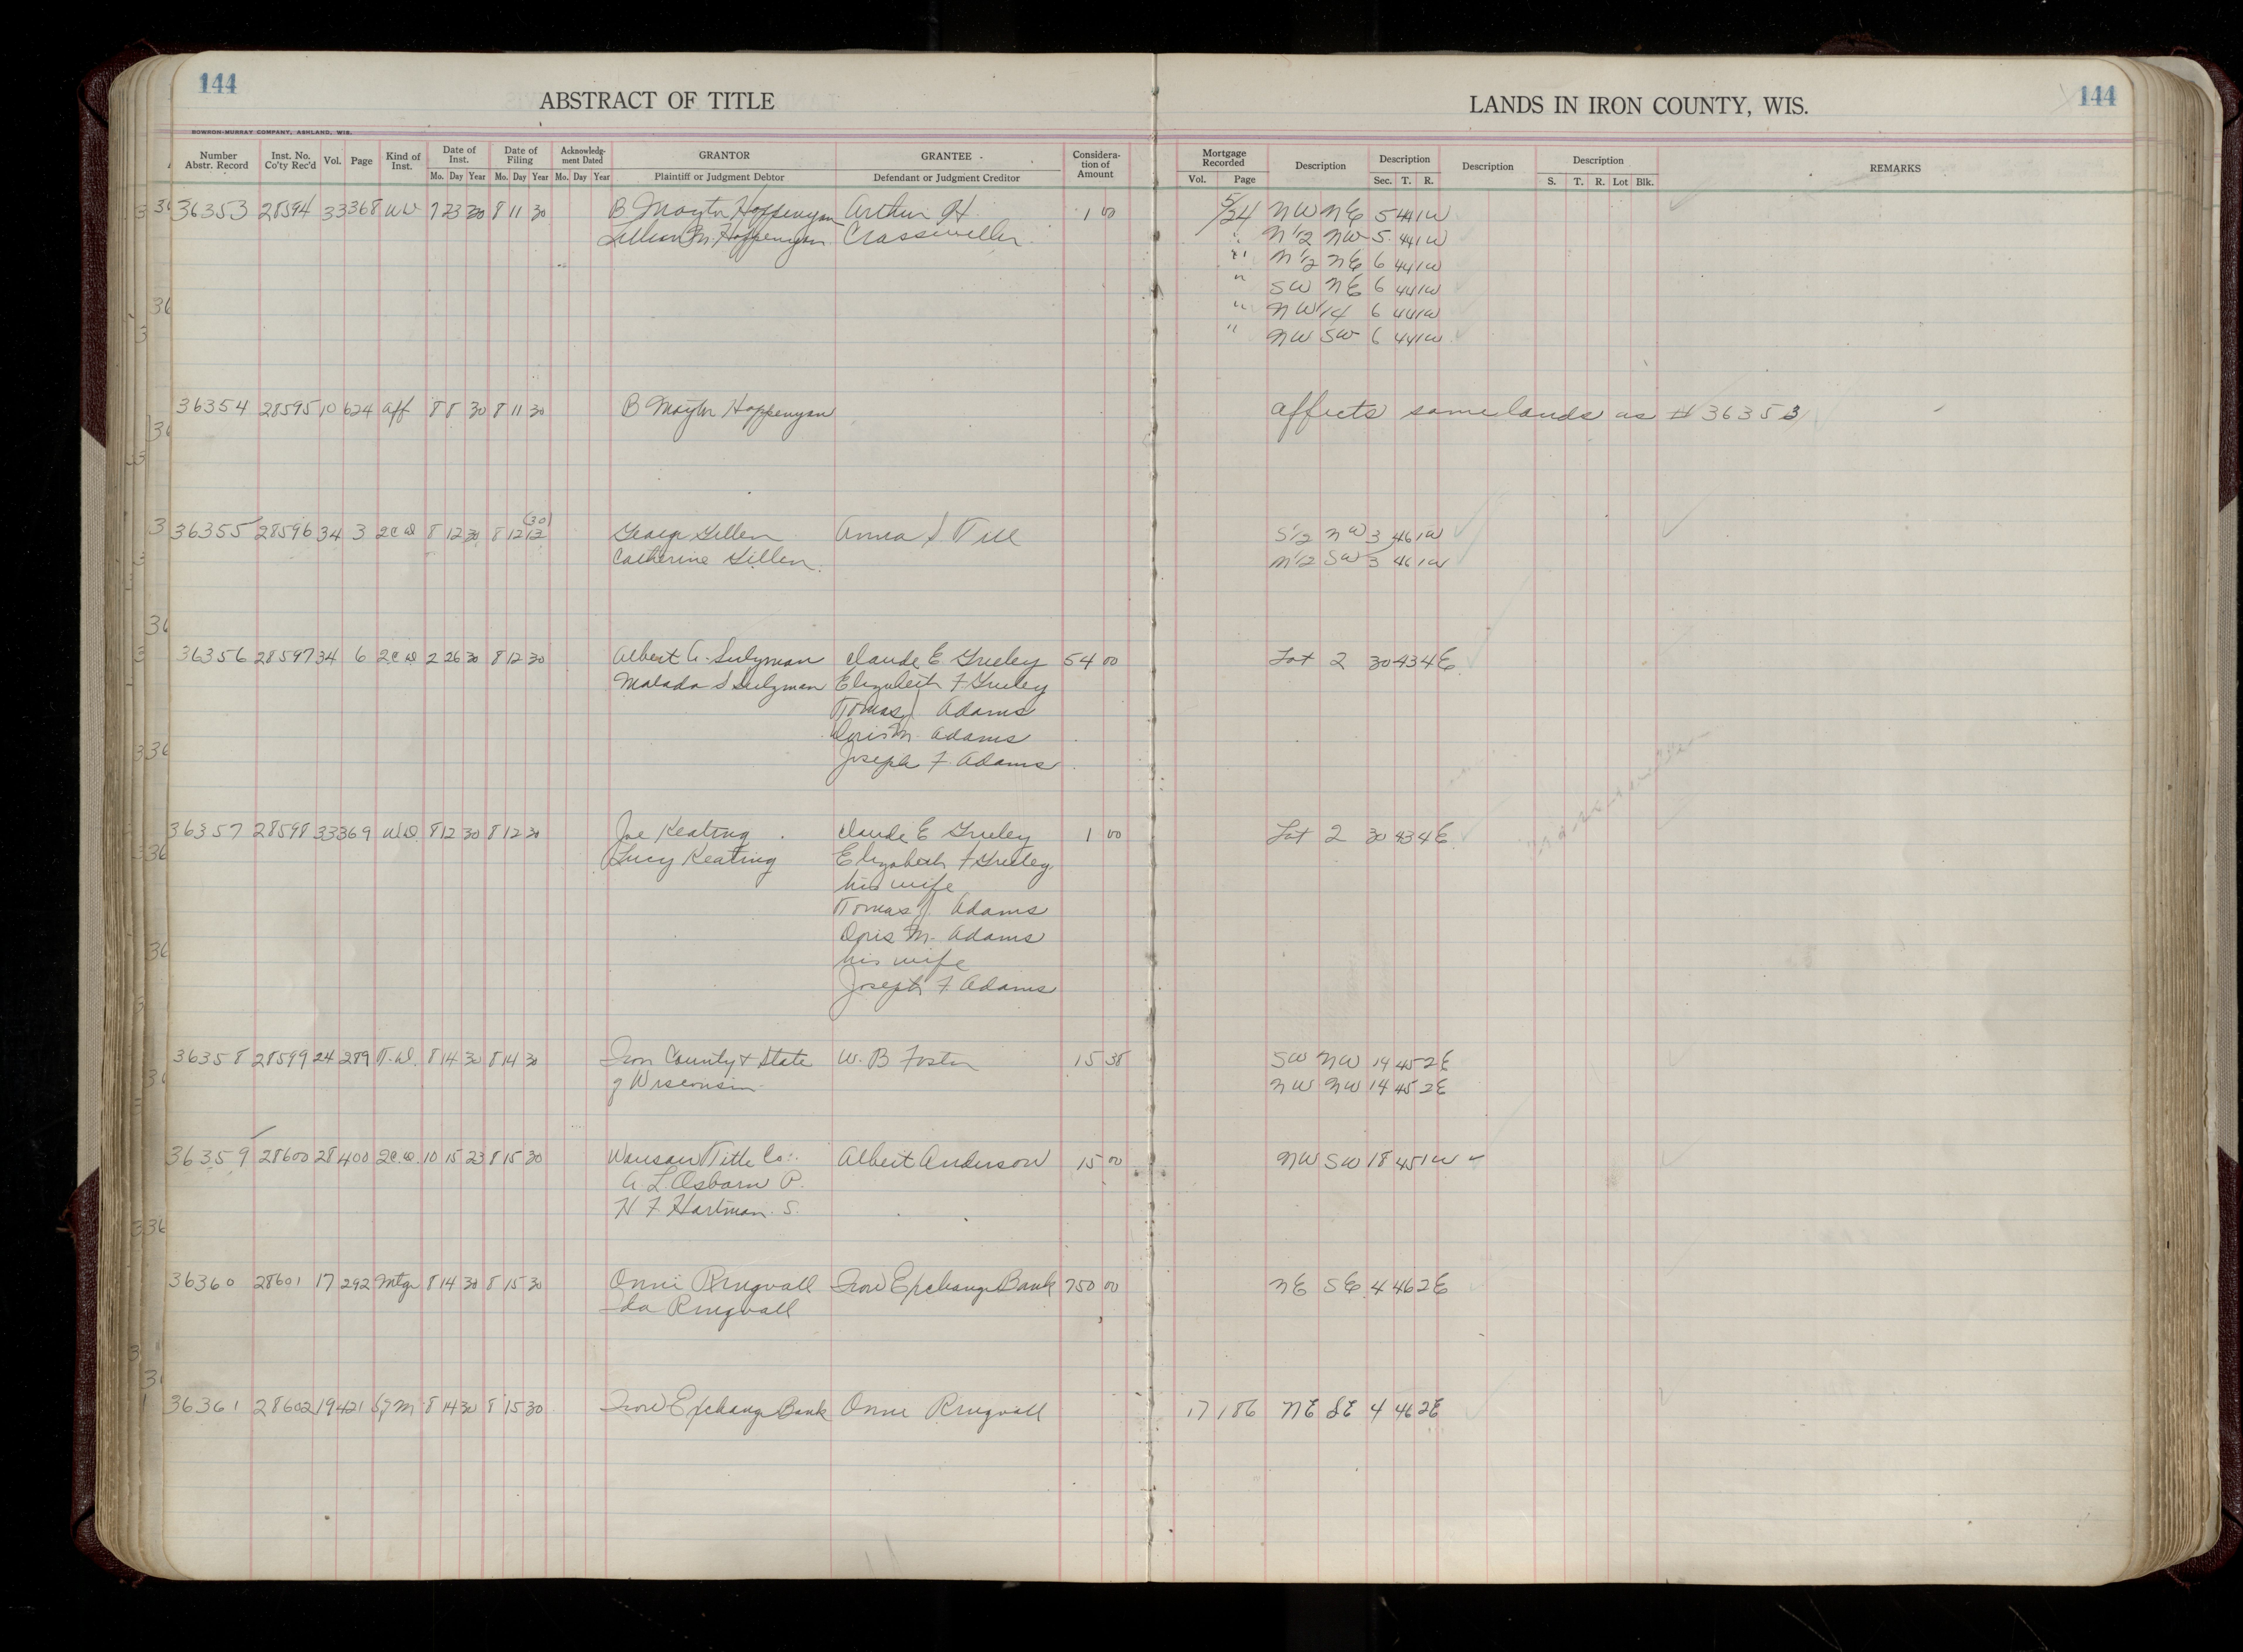 144
ABSTRACT OF TITLE
LANDS IN IRON COUNTY, WIS.
144
BOWRON-MURRAY COMPANY, ASHLAND, WIS.
Number Abstr. Record Inst. No. Co'ty Rec'd Vol. Page Kind of Inst. Date of Inst. Date of Filing Acknowledg-ment Dated GRANTOR GRANTEE Considera-tion of Amount Mortgage Recorded Description Description Description Description REMARKS
Mo. Day Year Mo. Day Year Mo. Day Year Plaintiff or Judgment Debtor Defendant or Judgment Creditor Vol. Page Sec. T. R. S. T. R. Lot Blk.
36353 28594 33 368 WD 7 23 30 8 11 30 B Hoppenyan Arthur H. 1 00 5/24 NW NE 5 44 1W
Lillian M. Hoppenyan Crassweller " N 1/2 NW 5 44 1W
" N 1/2 NE 6 44 1W
" SW NE 6 44 1W
" NW 1/4 6 44 1W
" NW SW 6 44 1W
36354 28595 10 624 Aff 8 8 30 8 11 30 B Hoppenyan affects same lands as # 36353
(30)
36355 28596 34 3 2CD 8 12 30 8 12 12 George Gillen Anna S S 1/2 NW 3 46 1W
Catherine Gillen. N 1/2 SW 3 46 1W
36356 28597 34 6 2CD 2 26 30 8 12 30 Albert A. Sulzman Claude E Greeley 54 00 Lot 2 30 43 4E
Malada S Sulzman Elizabeth F Greeley
Tomas J Adams
Doris M. Adams
Joseph F. Adams
36357 28598 33 369 WD. 8 12 30 8 12 30 Joe Keating Claude E Greeley 1 00 Lot 2 30 43 4E
Lucy Keating Elizabeth F Greeley
his wife
Tomas J. Adams
Doris M. Adams
his wife
Joseph F Adams
36358 28599 24 289 T.D. 8 14 30 8 14 30 Iron County & State W. B Foster 15 38 SW NW 14 45 2E
of Wisconsin NW NW 14 45 2E
36359 28600 28 400 2C.D. 10 15 23 8 15 30 Wausau Title Co. Albert Anderson 15 00 NW SW 18 45 1W
A. L. Osborn P.
H F Hartman. S.
36360 28601 17 292 Mtge 8 14 30 8 15 30 Onni Ringvall Iron Exchange Bank 750 00 NE SE 4 46 2E
Ida Ringvall
36361 28602 19 421 8 14 30 8 15 30 Iron Exchange Bank Onni Ringvall 17 186 NE SE 4 46 2E